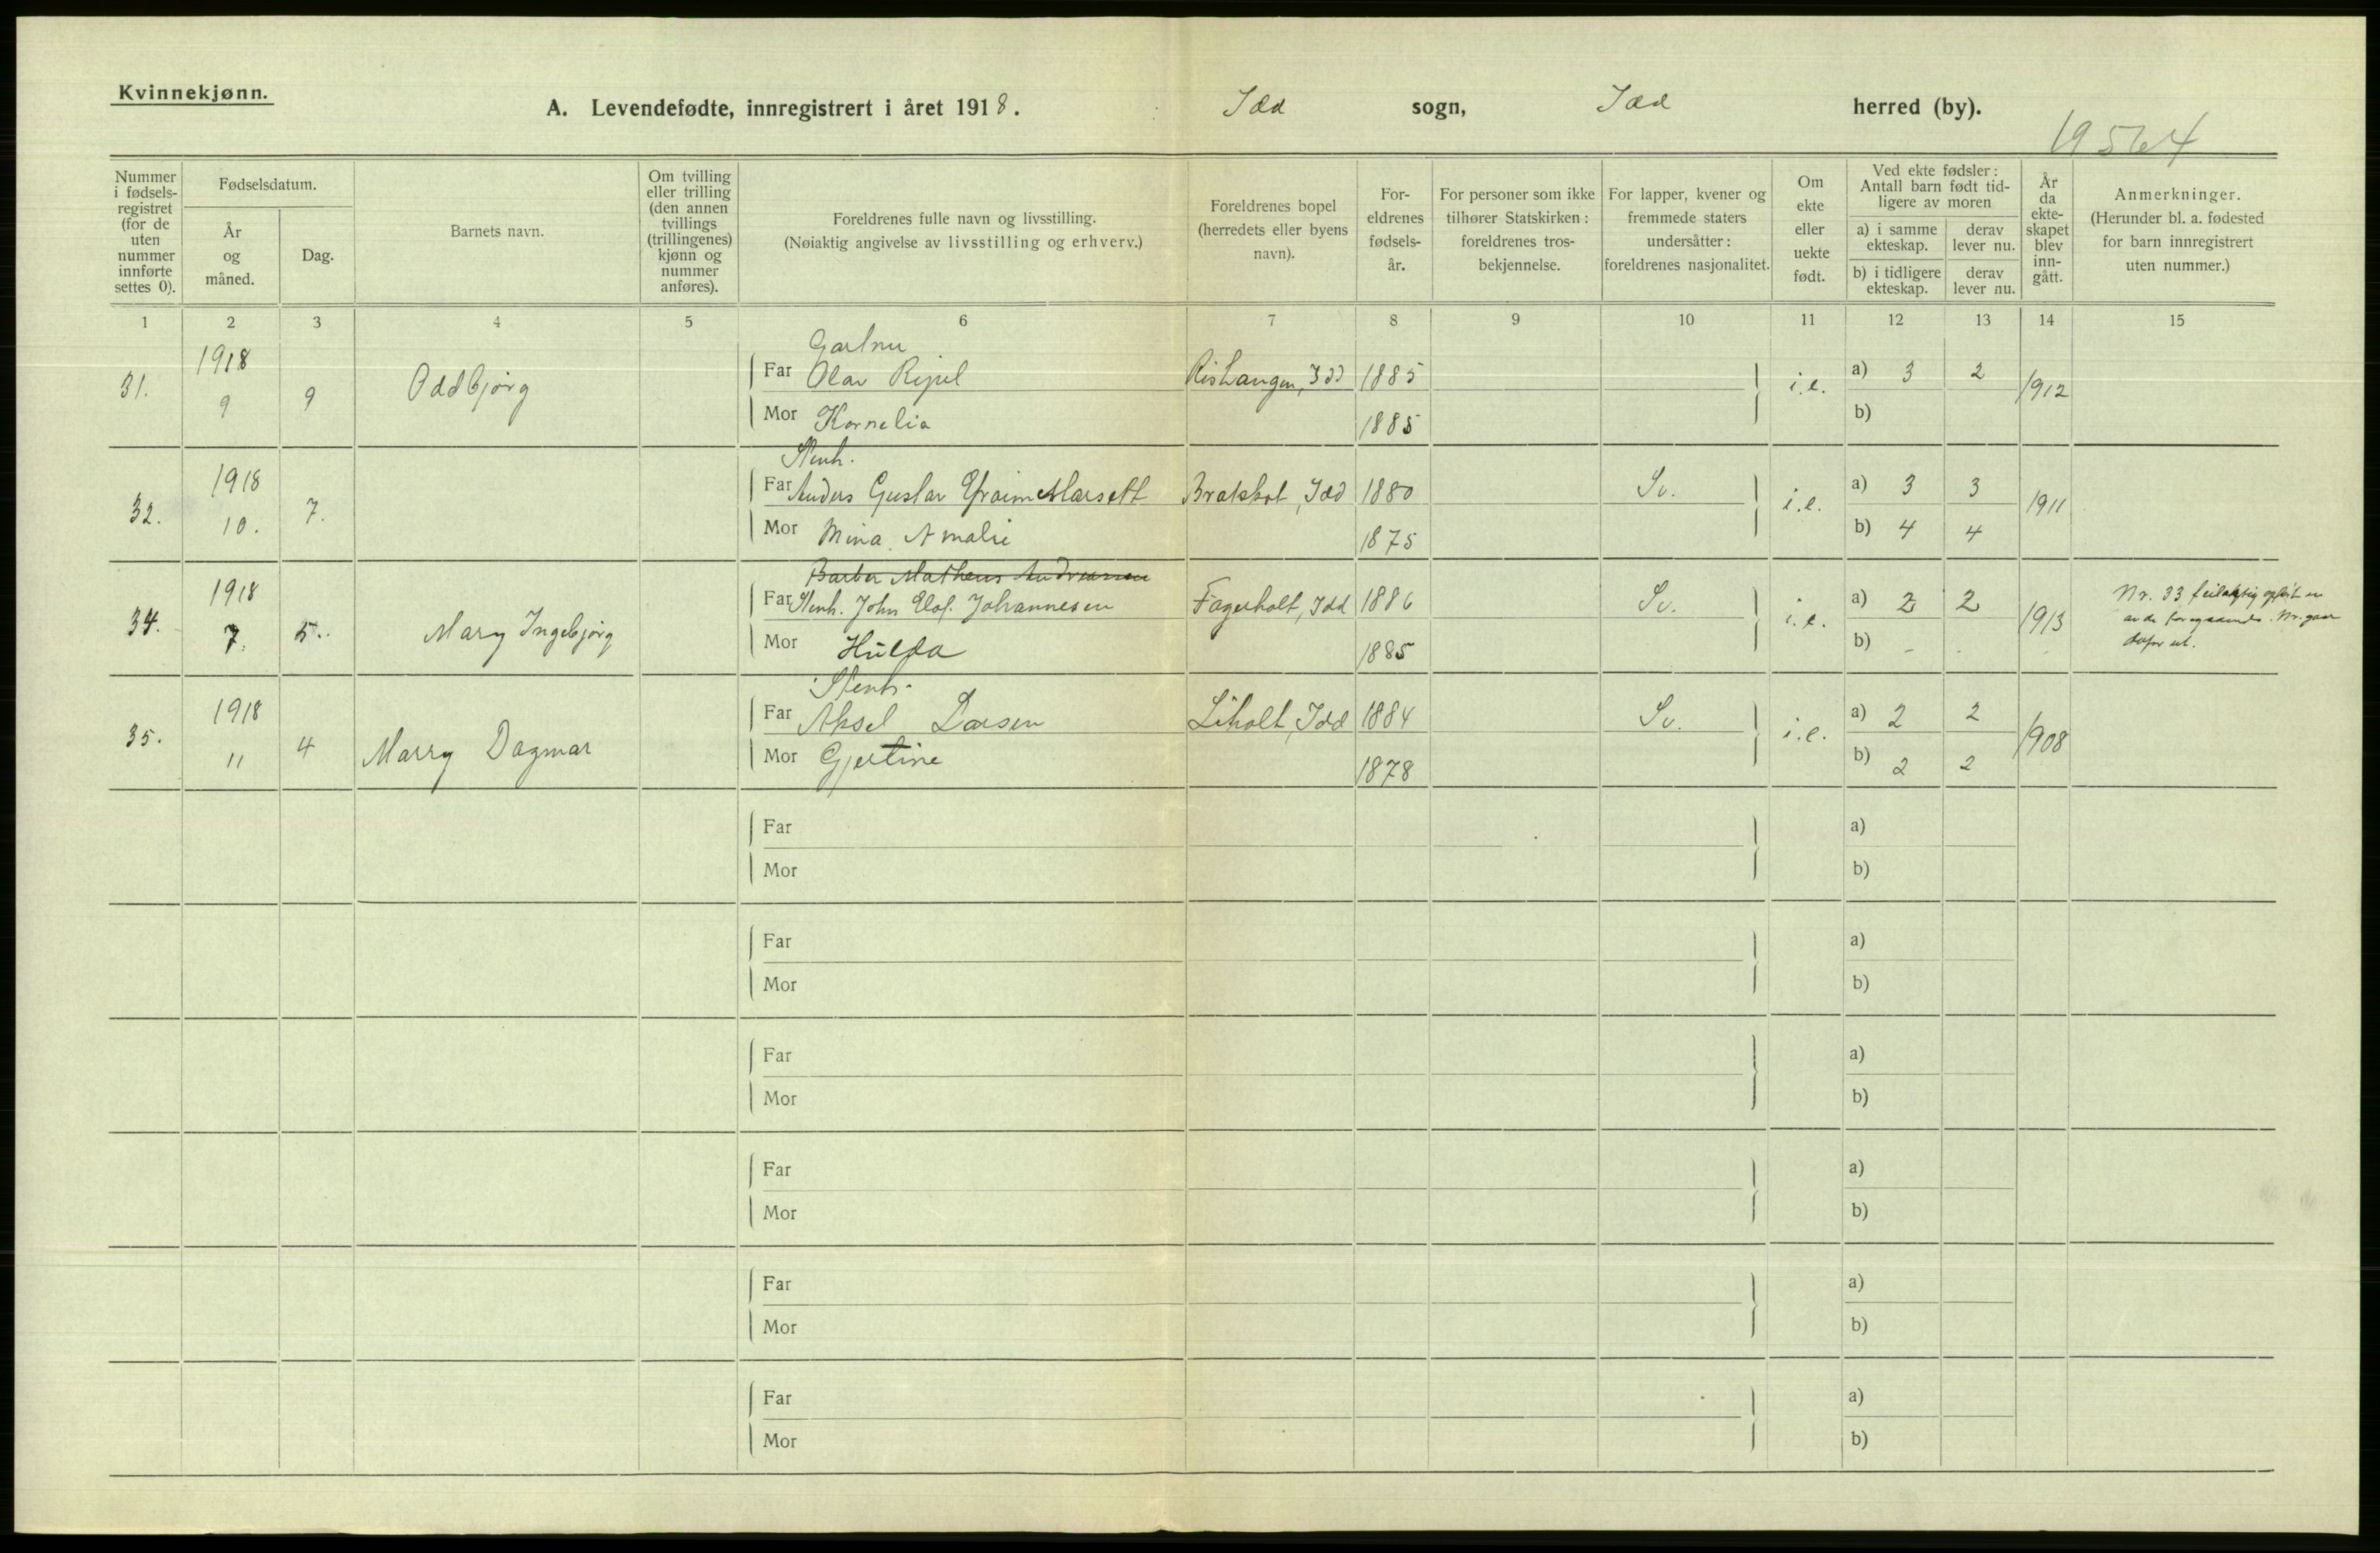 Kvinnekjønn.
A. Levendefødte, innregistrert i året 1918. Idd sogn, Idd herred (by).
19564
Nummer i fødselsregistret (for de uten nummer innførte settes 0).
Fødselsdatum.
År og måned.
Dag.
Barnets navn.
Om tvilling eller trilling (den annen tvillings (trillingenes) kjønn og nummer anføres).
Foreldrenes fulle navn og livsstilling.
(Nøiaktig angivelse av livsstilling og erhverv.)
Foreldrenes bopel (herredets eller byens navn).
For-eldrenes fødsels-år.
For personer som ikke tilhører Statskirken: foreldrenes tros-bekjennelse.
For lapper, kvener og fremmede staters undersåtter: foreldrenes nasjonalitet.
Om ekte eller uekte født.
Ved ekte fødsler: Antall barn født tid-ligere av moren
a) i samme ekteskap.
derav lever nu.
b) i tidligere ekteskap.
derav lever nu.
År da ekte-skapet blev inn-gått.
Anmerkninger.
(Herunder bl. a. fødested for barn innregistrert uten nummer.)
1 2 3 4 5 6 7 8 9 10 11 12 13 14 15
Gartner
31. 1918 9 9 Oddbjørg Far Olav Rejul Rishaugen, Idd 1885 i.e. a) 3 2 1912
Mor Kornelia 1885 b)
Stenh.
32. 1918 10. 7. Far Anders Gustav Efraim Marsett Bratskot, Idd 1880 Sv. i.e. a) 3 3 1911
Mor Mina Amalie 1875 b) 4 4
Barber Matheus Andreassen
34. 1918 7. 5. Mary Ingebjørg Far Stenh. John Elof. Johannesen Fagerholt, Idd 1886 Sv. i.e. a) 2 2 1913
Mor Hulda 1885 b) - -
Nr. 33 feilagtig opført en
av de foregaaende. Nr. gaar
derfor ut.
Stenh.
35. 1918 11 4 Marry Dagmar Far Aksel Larsen Liholt, Idd 1884 Sv. i.e. a) 2 2 1908
Mor Gjertine 1878 b) 2 2
Far a)
Mor b)
Far a)
Mor b)
Far a)
Mor b)
Far a)
Mor b)
Far a)
Mor b)
Far a)
Mor b)